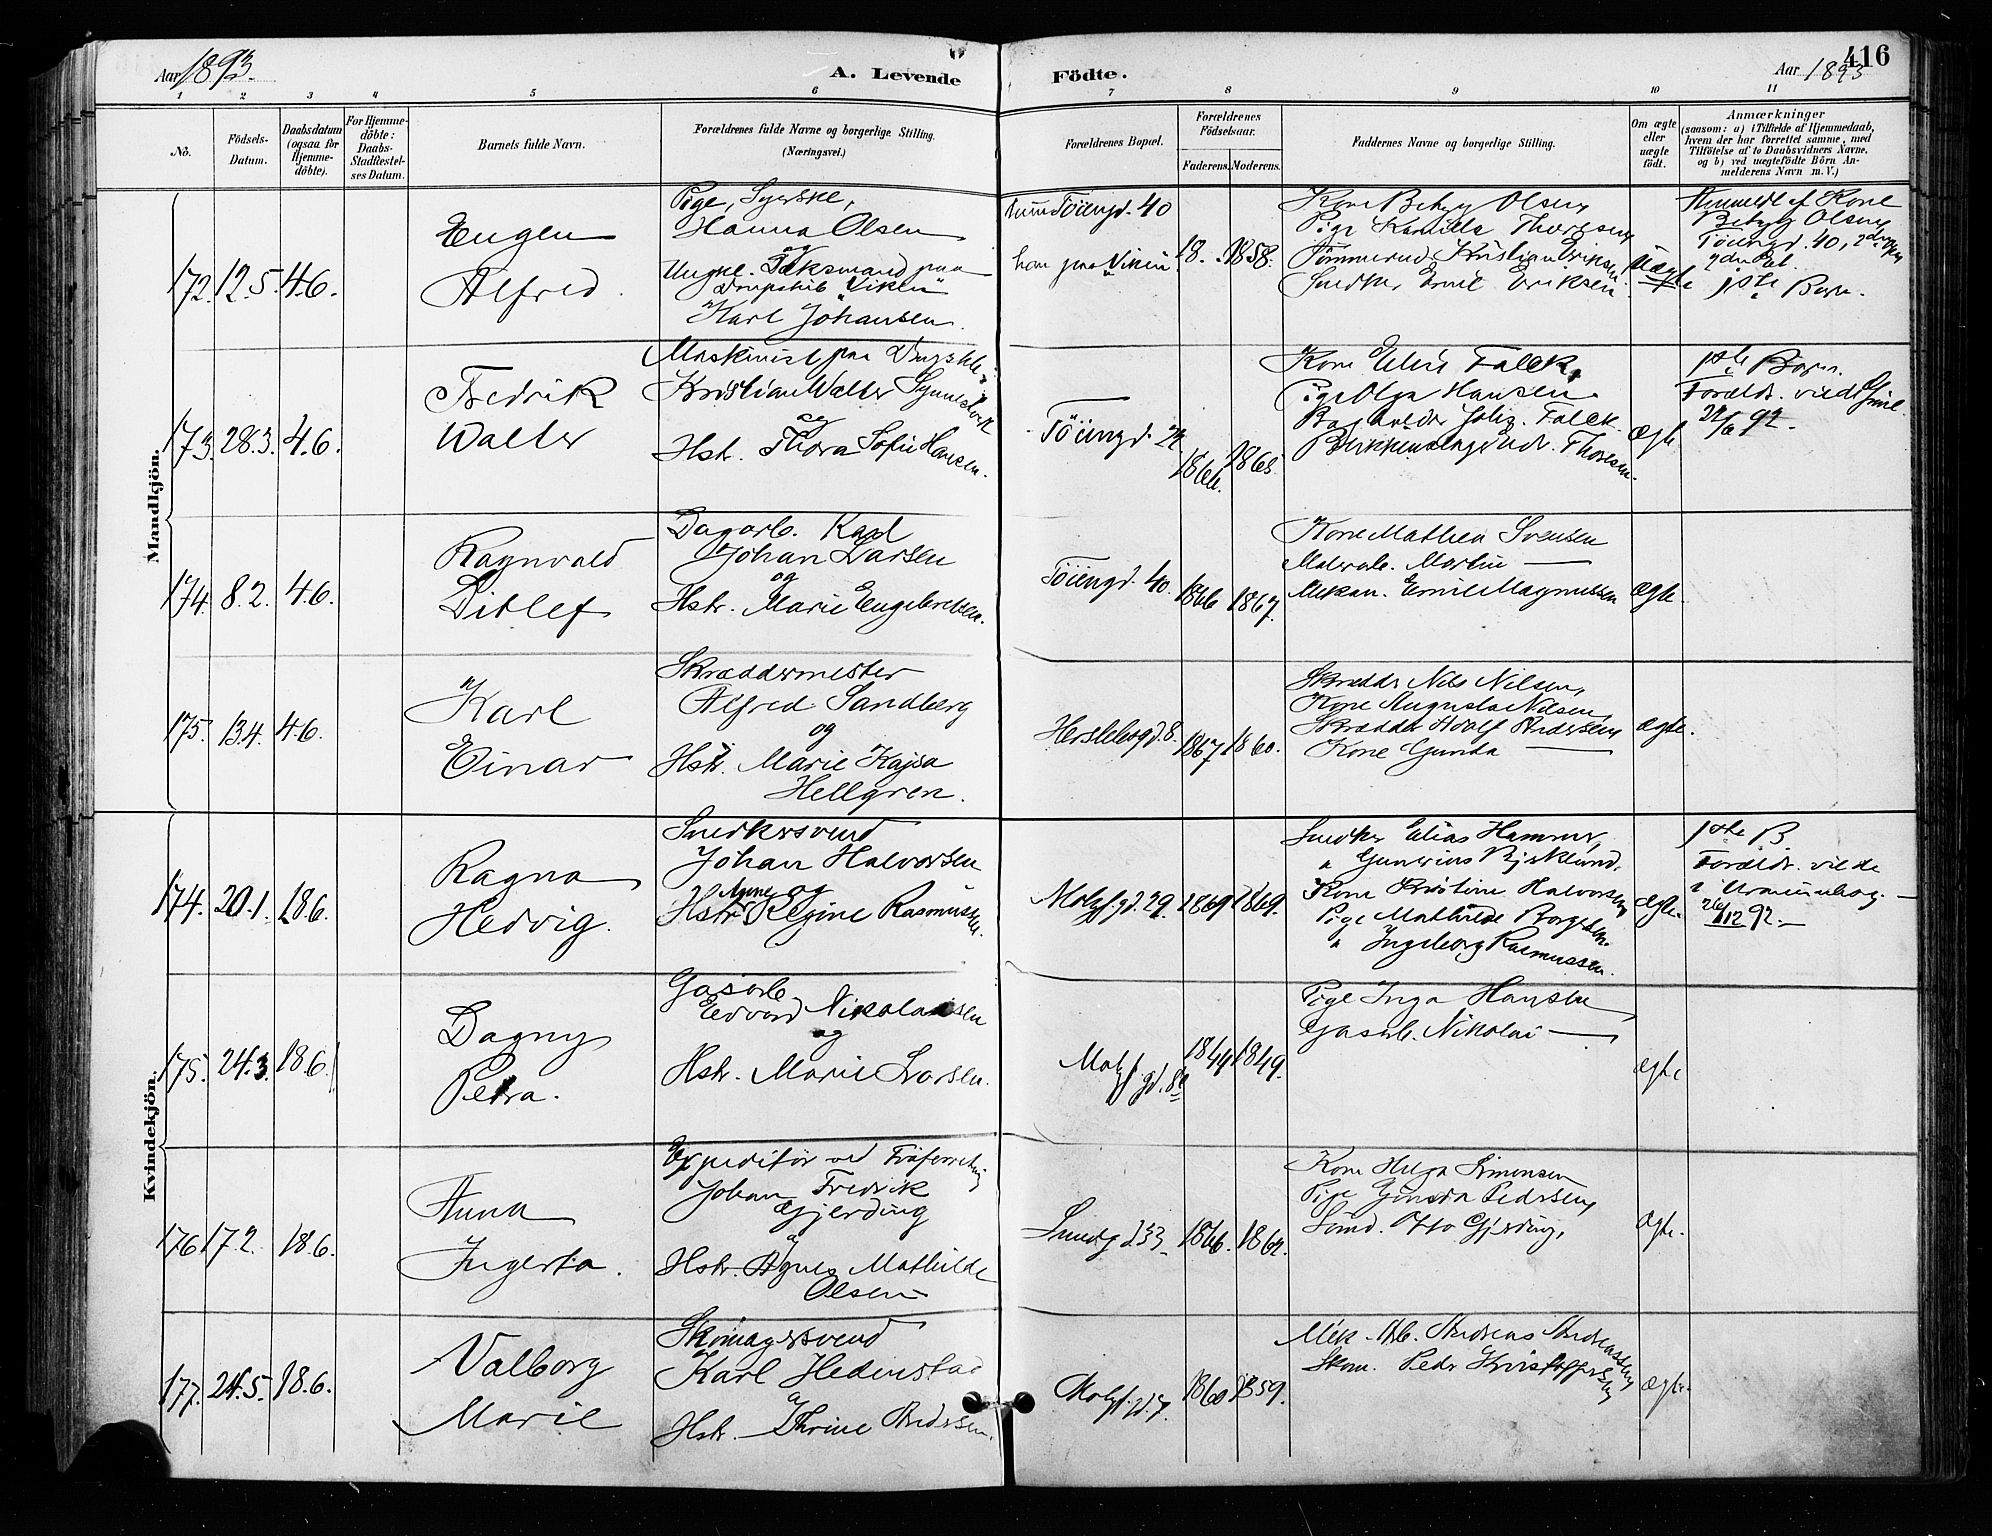 416
Aar 1893.
A. Levende Födte.
Aar 1893
1 2 3 4 5 6 7 8 9 10 11
No.
Födsels-
Datum.
Daabsdatum
(ogsaa for
Hjemme-
döbte).
For Hjemme-
döbte:
Daabs-
Stadfæstel-
ses Datum.
Barnets fulde Navn.
Forældrenes fulde Navne og borgerlige Stilling.
(Næringsvei.)
Forældrenes Bopæl.
Forældrenes
Födselsaar.
Faderens. Moderens.
Faddernes Navne og borgerlige Stilling.
Om ægte
eller
uægte
födt.
Anmærkninger
(saasom: a) i Tilfælde af Hjemmedaab,
hvem der har forrettet samme, med
Tilföielse af to Daabsvidners Navne,
og b) ved uægtefödte Börn An-
melderens Navn m. V.)
Mandkjön.
172. 12.5. 4.6.
Eugen
Alfred.
Pige, Syerske,
Hanna Olsen
og
Ungk. Dæksmand paa
Dampskib "Viken"
Karl Johansen.
Töiengd. 40
han paa "Viken"
18. 1858.
Kone Betzy Olsen
Pige Kamilla Thoresen
Tömmermd Kristian Eriksen
Snedker Emil Eriksen
Uægte
Anmeldt af Kone
Betzy Olsen
Töiengd. 40,
1ste Barn.
173. 28.3. 4.6.
Fredrik
Walter
Maskinist paa
Kristian Walter
og
Hstr. Thora Sofie Hansen.
Töiengd. 24
1866. 1865
Kone Elise Falck,
Pige Olga Hansen
Falck
Thoresen.
ægte
1ste Barn.
Foreldr. viede
92.
174. 8.2. 4.6.
Ragnvald
Ditlef
Dagarb. Karl
Johan Larsen
og
Hstr. Marie Engebretsen.
Töiengd. 40. 1866 1867.
Kone Mathea Svensen
Malerarb. Martin —
Mekan. Emil Magnussen
ægte.
175. 13.4. 4.6.
Karl
Einar
Skræddermester
Alfred Sandberg
og
Hstr. Marie Kajsa
Hellgren.
Herslebsgd. 8. 1867 1860.
Skrædder Nils Nilsen,
Kone Augusta Nilsen,
Skrædder Adolf Andersen
Kone Gunda —
ægte.
Kvindekjön.
174. 20.1. 18.6.
Ragna
Hedvig.
Snedkersvend
Johan Halvorsen
og
Hstr. Anne Regine Rasmussen.
Motzf.gd. 29. 1869 1869.
Snedker Elias Hammer,
" Gunerius Bjerklund.
Kone Kristine Halvorsen
Pige Mathilde Borgersen.
" Ingeborg Rasmussen.
ægte.
1ste B.
Foreldr. viede
i Uranienborg.
26/12 92.
175. 24.3. 18.6.
Dagny
Petra.
Gasarb.
Edvard Nikolaisen
og
Hstr. Marie Larsen.
Motzf.gd. 8
1844 1849.
Pige Inga Hansen
Gasarb. Nikolai —
ægte
176 17.2. 18.6.
Anna
Ingerta.
Expeditör ved
Johan Fredrik
Gjerding
og
Hstr. Agnes Mathilde
Olsen
1866. 1864.
Kone Helga Simonsen
Pige Pedersen
Otto Gjerding,
ægte.
177. 24.5. 18.6.
Valborg
Marie
Skomagersvend
Karl Hedenstad
og
Hstr. Thrine Andersen.
Motzf.gd. 7. 1860 1859.
Mek. Arb. Andreas Andreassen
Skom. Peder Kristoffersen
ægte.